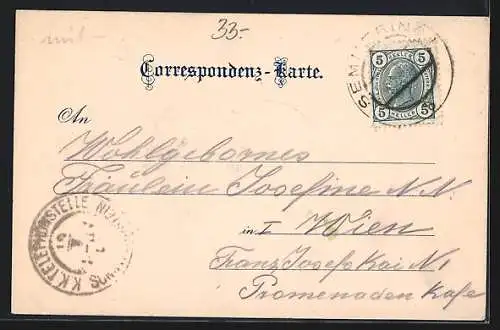 33.-
Correspondenz-Karte.
SEMMERING
5 5
HELLER
5 5
An
Wohlgebornes
Fräulein Josefine N. N.
in I Wien
Franz Josefs Kai N 1
Promenaden Kafe
K.K. TELEPHONSTELLE